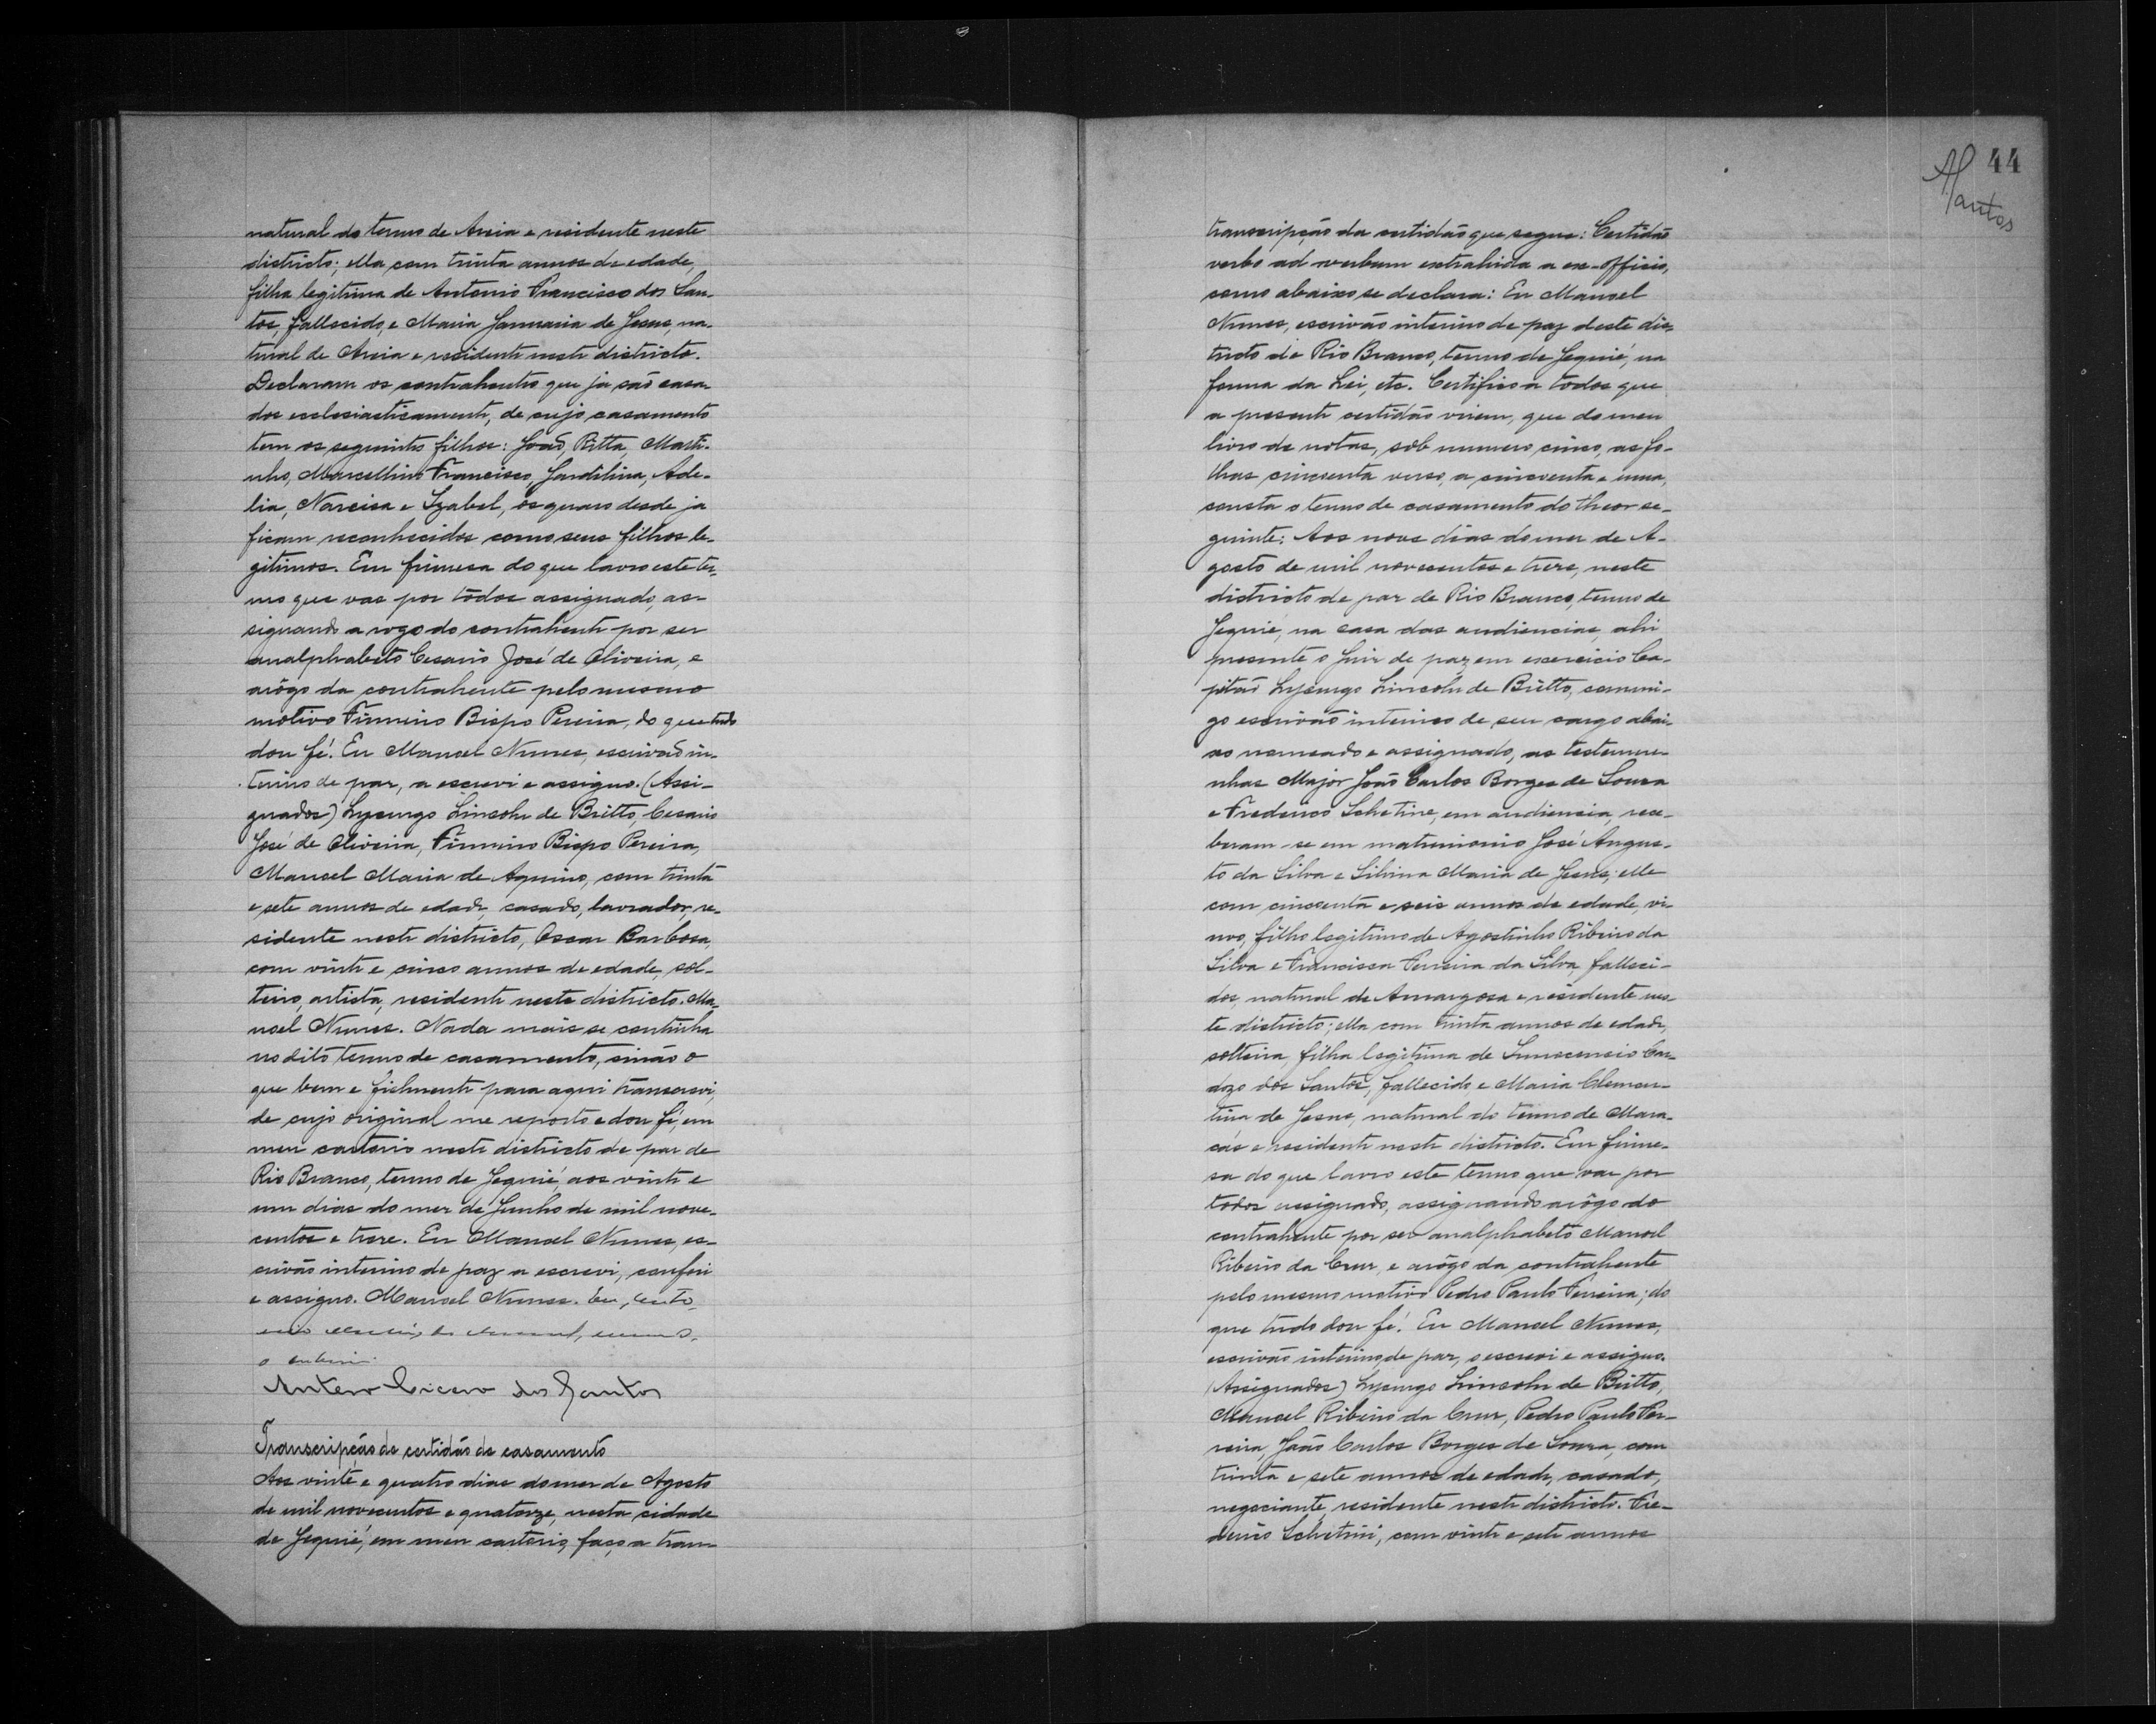 natural do termo de Areia e residente neste
districto; ella com trinta annos de edade,
filha legitima de Antonio Francisco dos San-
tos, fallecido, e Maria Januaria de Jesus, na-
tural de Areia e residente neste districto.
Declaram os contrahentes que ja são casa-
dos ecclesiasticamente, de cujo casamento
tem os seguintes filhos: João, Ritta, Marti-
nho, Marcellino Francisco, Jardilina, Ade-
lia, Narcisa e Izabel, os quaes desde ja
ficam reconhecidos como seus filhos le-
gitimos. Em firmesa do que lavro este ter-
mo que vae por todos assignado, as-
signando a rogo do contrahente por ser
analphabeto Cesario José de Oliveira, e
arôgo da contrahente pelo mesmo
motivo Firmino Bispo Pereira, do que tudo
dou fé. Eu Manoel Nunes, escrivão in-
terino de paz, a escrevi e assigno. (Assi-
gnados) Lycurgo Lincoln de Britto, Cesario
José de Oliveira, Firmino Bispo Pereira,
Manoel Maria de Aquino, com trinta
e sete annos de edade, casado, lavrador, re-
sidente neste districto, Oscar Barbosa,
com vinte e cinco annos de edade, sol-
teiro, artista, residente neste districto. Ma-
noel Nunes. Nada mais se continha
no dito termo de casamento, sinão o
que bem e fielmente para aqui transcrevi,
de cujo original me reporto e dou fé, em
meu cartorio neste districto de paz de
Rio Branco, termo de Jequié, aos vinte e
um dias do mez de Junho de mil nove-
centos e treze. Eu Manoel Nunes, es-
crivão interino de paz a escrevi, conferi
e assigno. Manoel Nunes. Eu,
o
Antero Cicero dos Santos
Transcripção de certidão de casamento
Aos vinte e quatro dias do mez de Agosto
de mil novecentos e quatorze, nesta cidade
de Jequié, em meu cartorio, faço a trans-
44
Santos
transcripção da certidão que segue: Certidão
verbo ad verbum extrahida a ex-officio,
como abaixo se declara: Eu Manoel
Nunes, escrivão interino de paz deste dis-
tricto de Rio Branco, termo de Jequié, na
forma da Lei, etc. Certifico a todos que
a presente certidão virem, que do meu
livro de notas, sob numero cinco, as fo-
lhas cincoenta verso, a cincoenta e uma,
consta o termo de casamento do theor se-
guinte: Aos nove dias do mez de A-
gosto de mil novecentos e treze, neste
districto de paz de Rio Branco, termo de
Jequié, na casa das audiencias, ahi
presente o Juiz de paz em exercicio Ca-
pitão Lycurgo Lincoln de Britto, commi-
go escrivão interino de seu cargo abai-
xo nomeado e assignado, as testemu-
nhas Major João Carlos Borges de Souza
e Frederico Schetine, em audiencia, rece-
beram-se em matrimonio José Augus-
to da Silva e Silvina Maria de Jesus; elle
com cincoenta e seis annos de edade, vi-
uvo, filho legitimo de Agostinho Ribeiro da
Silva e Francisca Pereira da Silva, falleci-
dos, natural de Amargosa e residente nes-
te districto; ella com trinta annos de edade,
solteira, filha legitima de Innocencio Car-
dozo dos Santos, fallecido e Maria Clemen-
tina de Jesus, natural do termo de Mara-
cás e residente neste districto. Em firme-
sa do que lavro este termo que vae por
todos assignado, assignando arôgo do
contrahente por ser analphabeto Manoel
Ribeiro da Cruz, e arôgo da contrahente
pelo mesmo motivo Pedro Paulo Pereira; do
que tudo dou fé. Eu Manoel Nunes,
escrivão interino, de paz, o escrevi e assigno.
(Assignados) Lycurgo Lincoln de Britto,
Manoel Ribeiro da Cruz, Pedro Paulo Pe-
reira, João Carlos Borges de Souza, com
trinta e sete annos de edade, casado,
negociante, residente neste districto. Fre-
derico Schetini, com vinte e sete annos